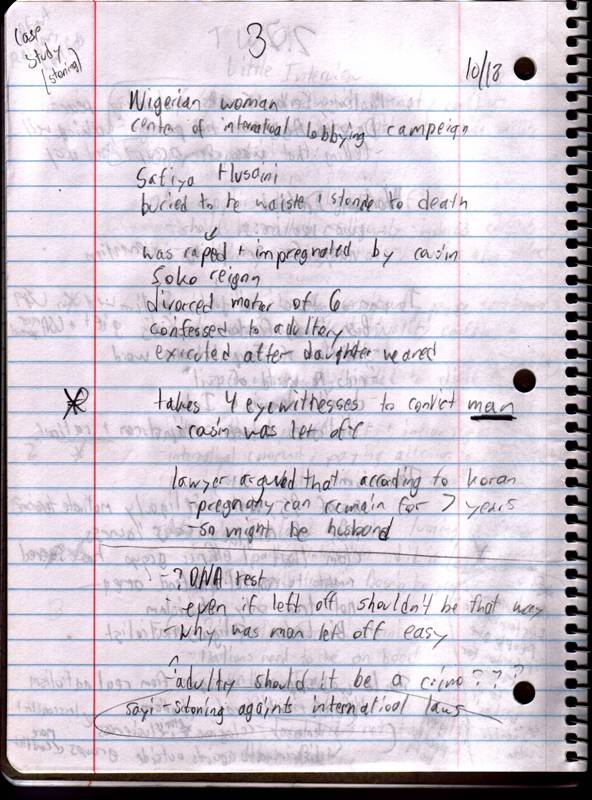 Case
Study
(stoning)
3
10/18
Nigerian woman
center of internatioal lobbying campaign
Safiya Husaini
buried to te waiste + stonde to death
was raped + impregnated by casin
Soko reign
divorced mother of 6
confessed to adultory
executed after daughter weaned
takes 4 eyewitnesses to convict man
- casin was let off
lawyer argued that according to koran
- pregnany can remain for 7 years
- so might be husband
- ? DNA test
- even if left off shouldn't be that way
- why was man left off easy
- adultry should it be a crime ? ? ?
- stoning againts internatioal laws